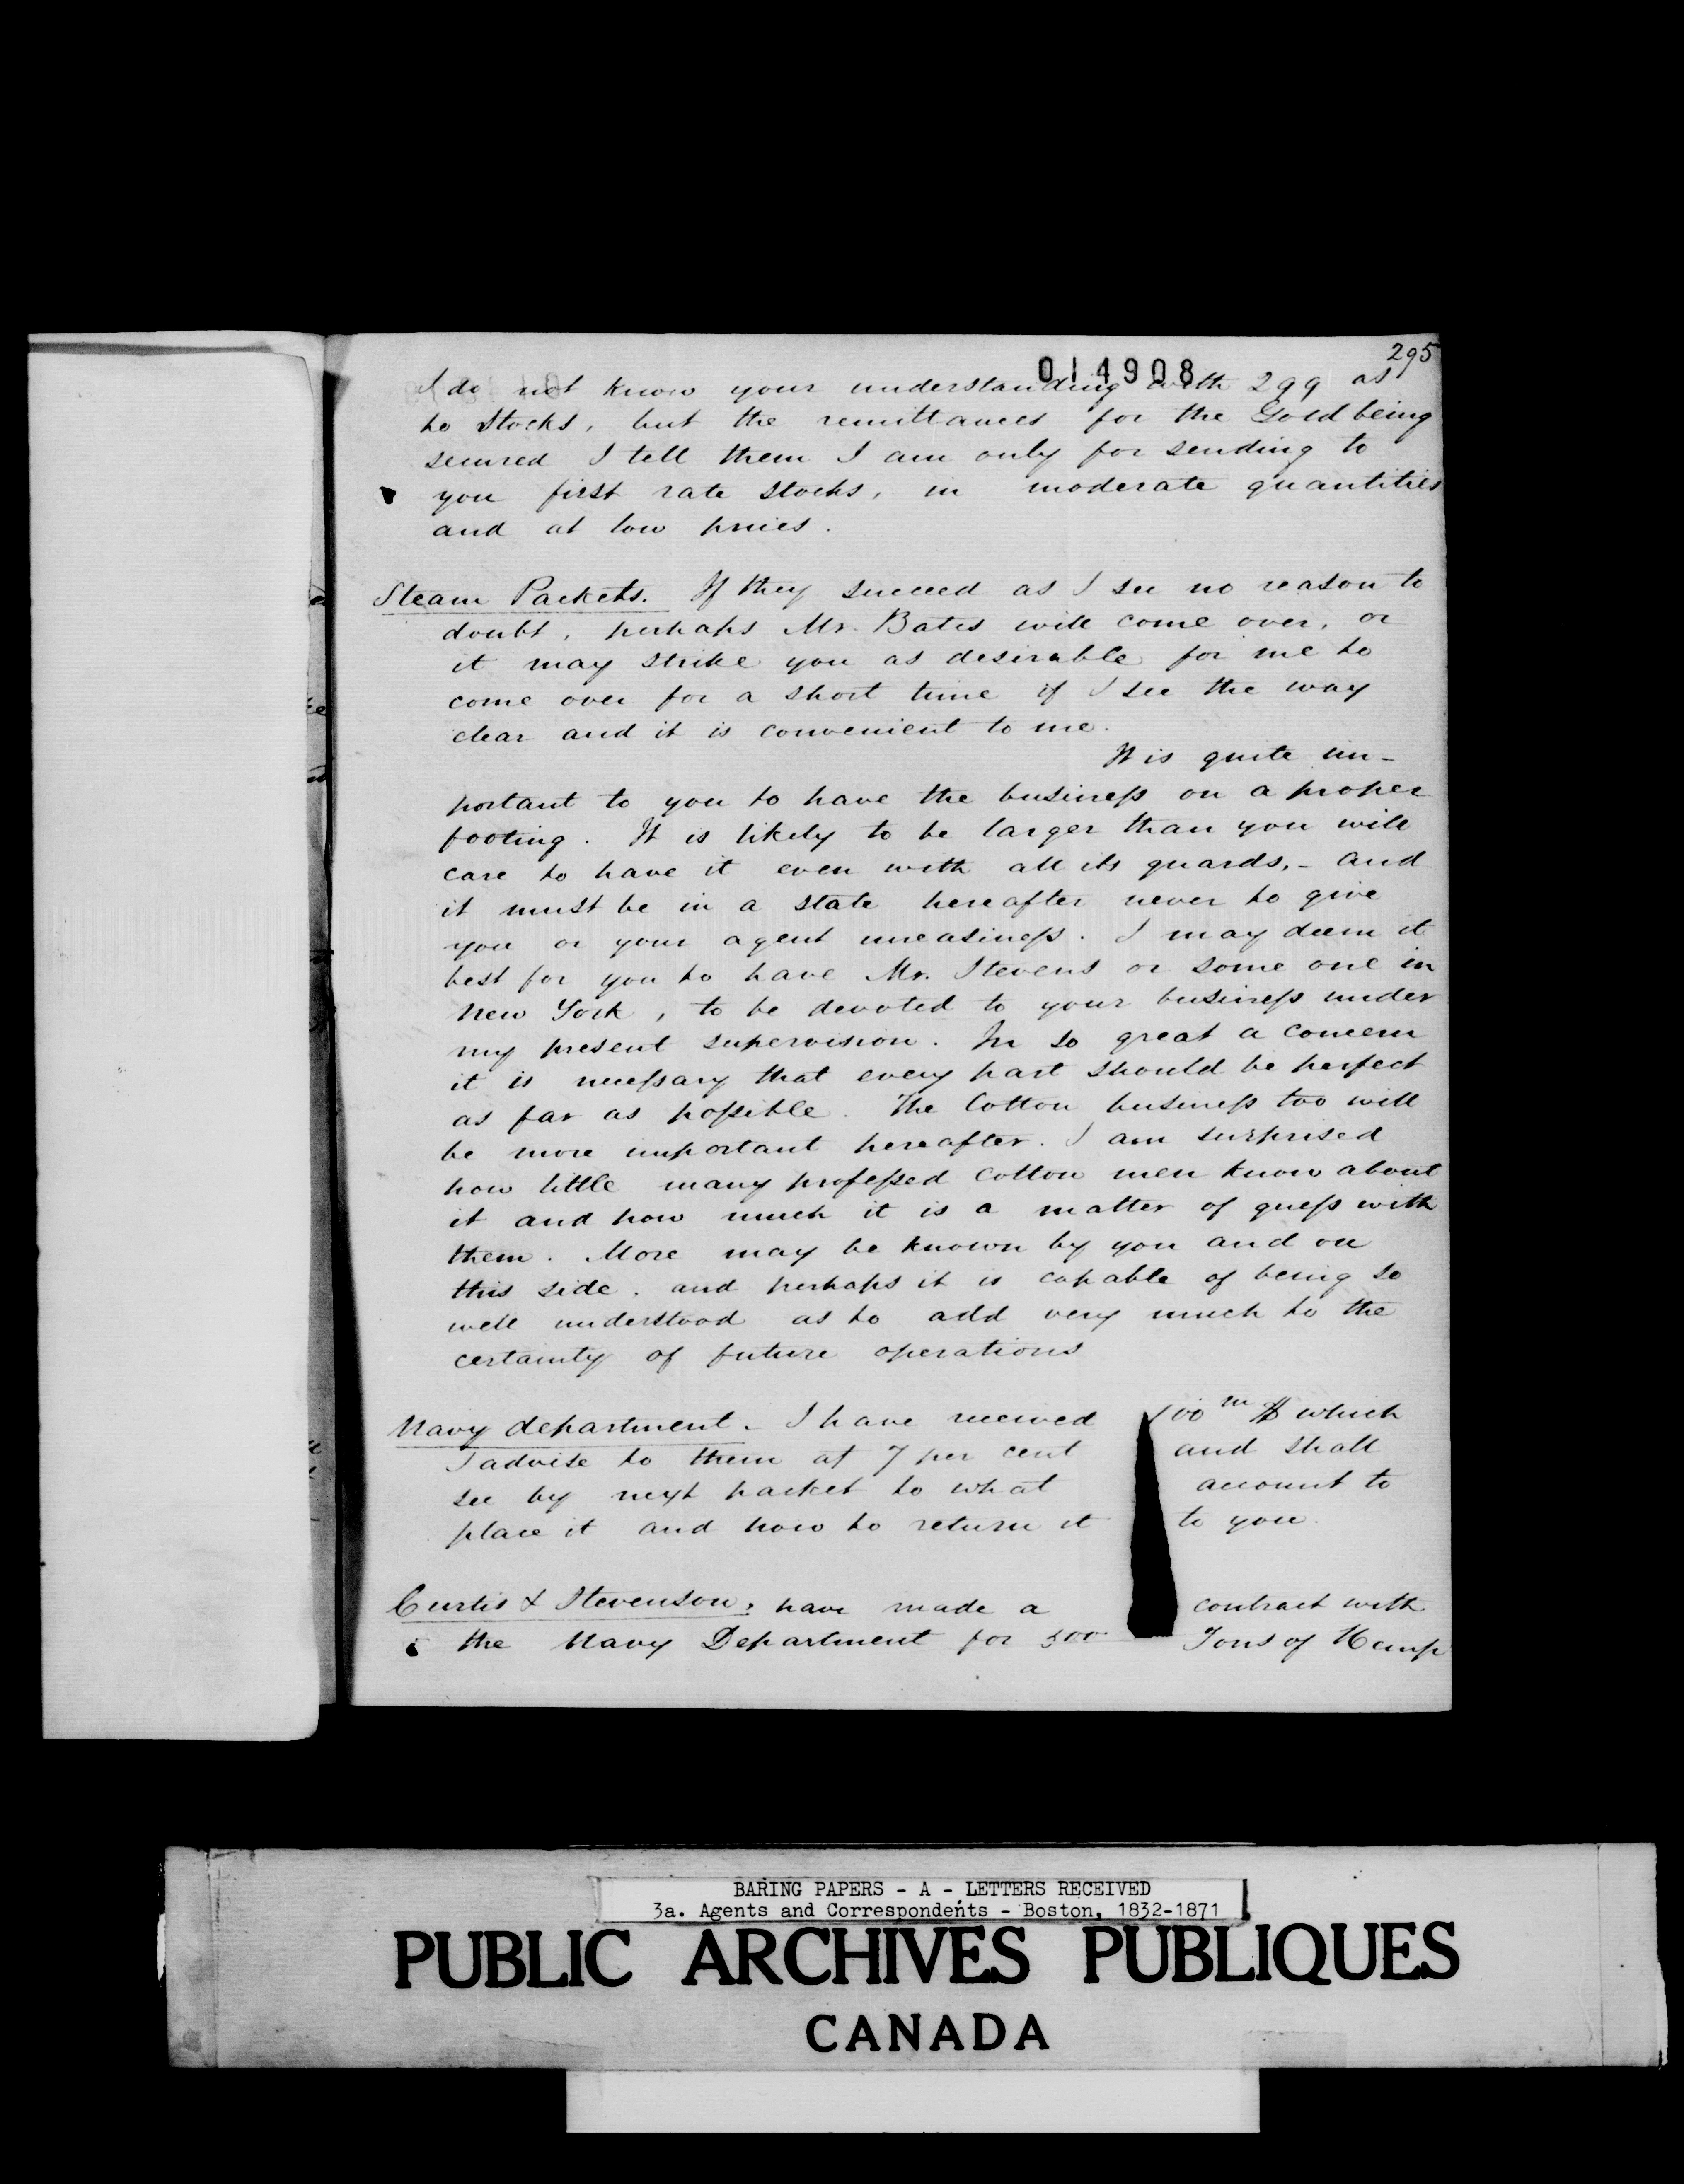 295
014908
I do not know your understanding with 299 as
to Stocks, but the remittances for the Gold being
secured I tell them I am only for sending to
you first rate stocks, in moderate quantities
and at low prices.
Steam Packets. If they succeed as I see no reason to
doubt, perhaps Mr. Bates will come over, or
it may strike you as desirable for me to
come over for a short time if I see the way
clear and it is convenient to me.
It is quite im-
portant to you to have the business on a proper
footing. It is likely to be larger than you will
care to have it even with all its guards, - and
it must be in a state hereafter never to give
you or your agent uneasiness. I may deem it
best for you to have Mr. Stevens or some one in
New York, to be devoted to your business under
my present supervision. In so great a concern
it is necessary that every part should be perfect
as far as possible. The Cotton business too will
be more important hereafter. I am surprised
how little many professed cotton men know about
it and how much it is a matter of guess with
them. More may be known by you and on
this side, and perhaps it is capable of being so
well understood as to add very much to the
certainty of future operations
Navy department. I have received 100 m $ which
I advise to them at 7 per cent and shall
see by next packet to what account to
place it and how to return it to you.
Curtis & Stevenson, have made a contract with
the Navy Department for 500 Tons of Hemp
BARING PAPERS - A - LETTERS RECEIVED
3a. Agents and Correspondents - Boston, 1832-1871
PUBLIC ARCHIVES PUBLIQUES
CANADA